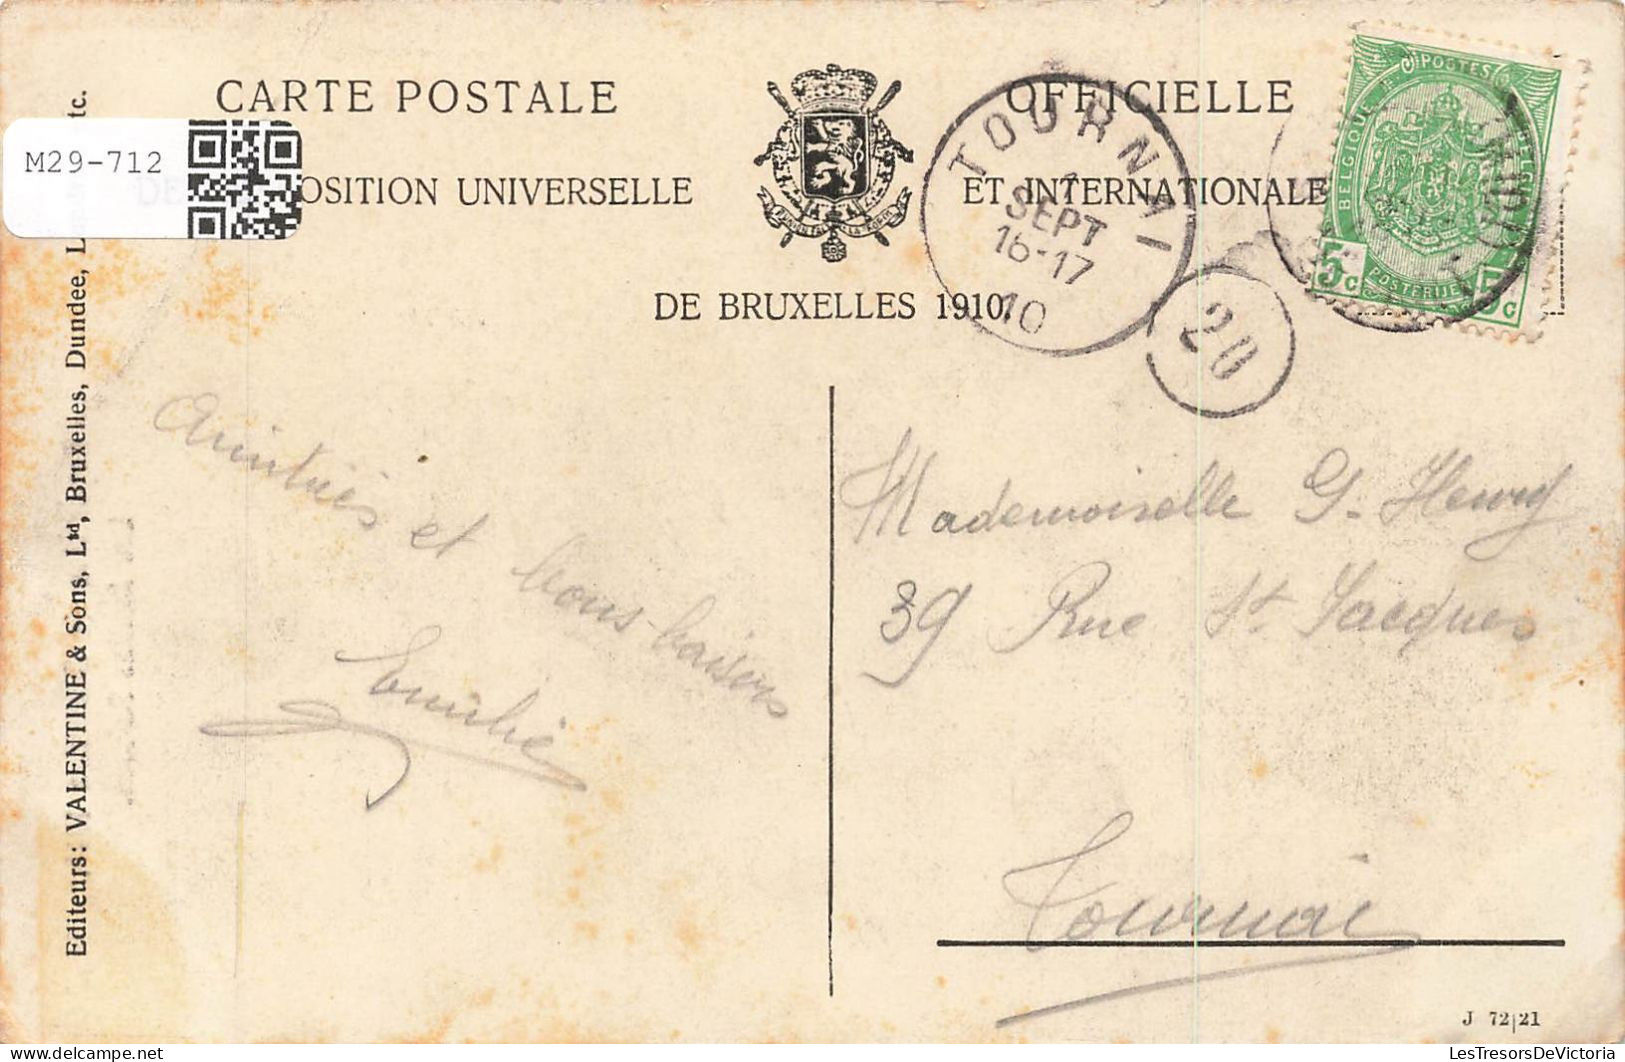 CARTE POSTALE OFFICIELLE
DE OSITION UNIVERSELLE ET INTERNATIONALE
DE BRUXELLES 1910.
M29-712
Editeurs: VALENTINE & Sons, Ltd, Bruxelles, Dundee, L tc.
TOURNAI
1
SEPT
16-17
10
20
POSTES
BELGIQUE
BELGIË
POSTERIJEN
5c 5c
Amitiés et bons baisers
Emilie
Mademoiselle G. Henry
39 Rue St Jacques
Tournai
J 72|21
www.LesTresorsDeVictoria.com